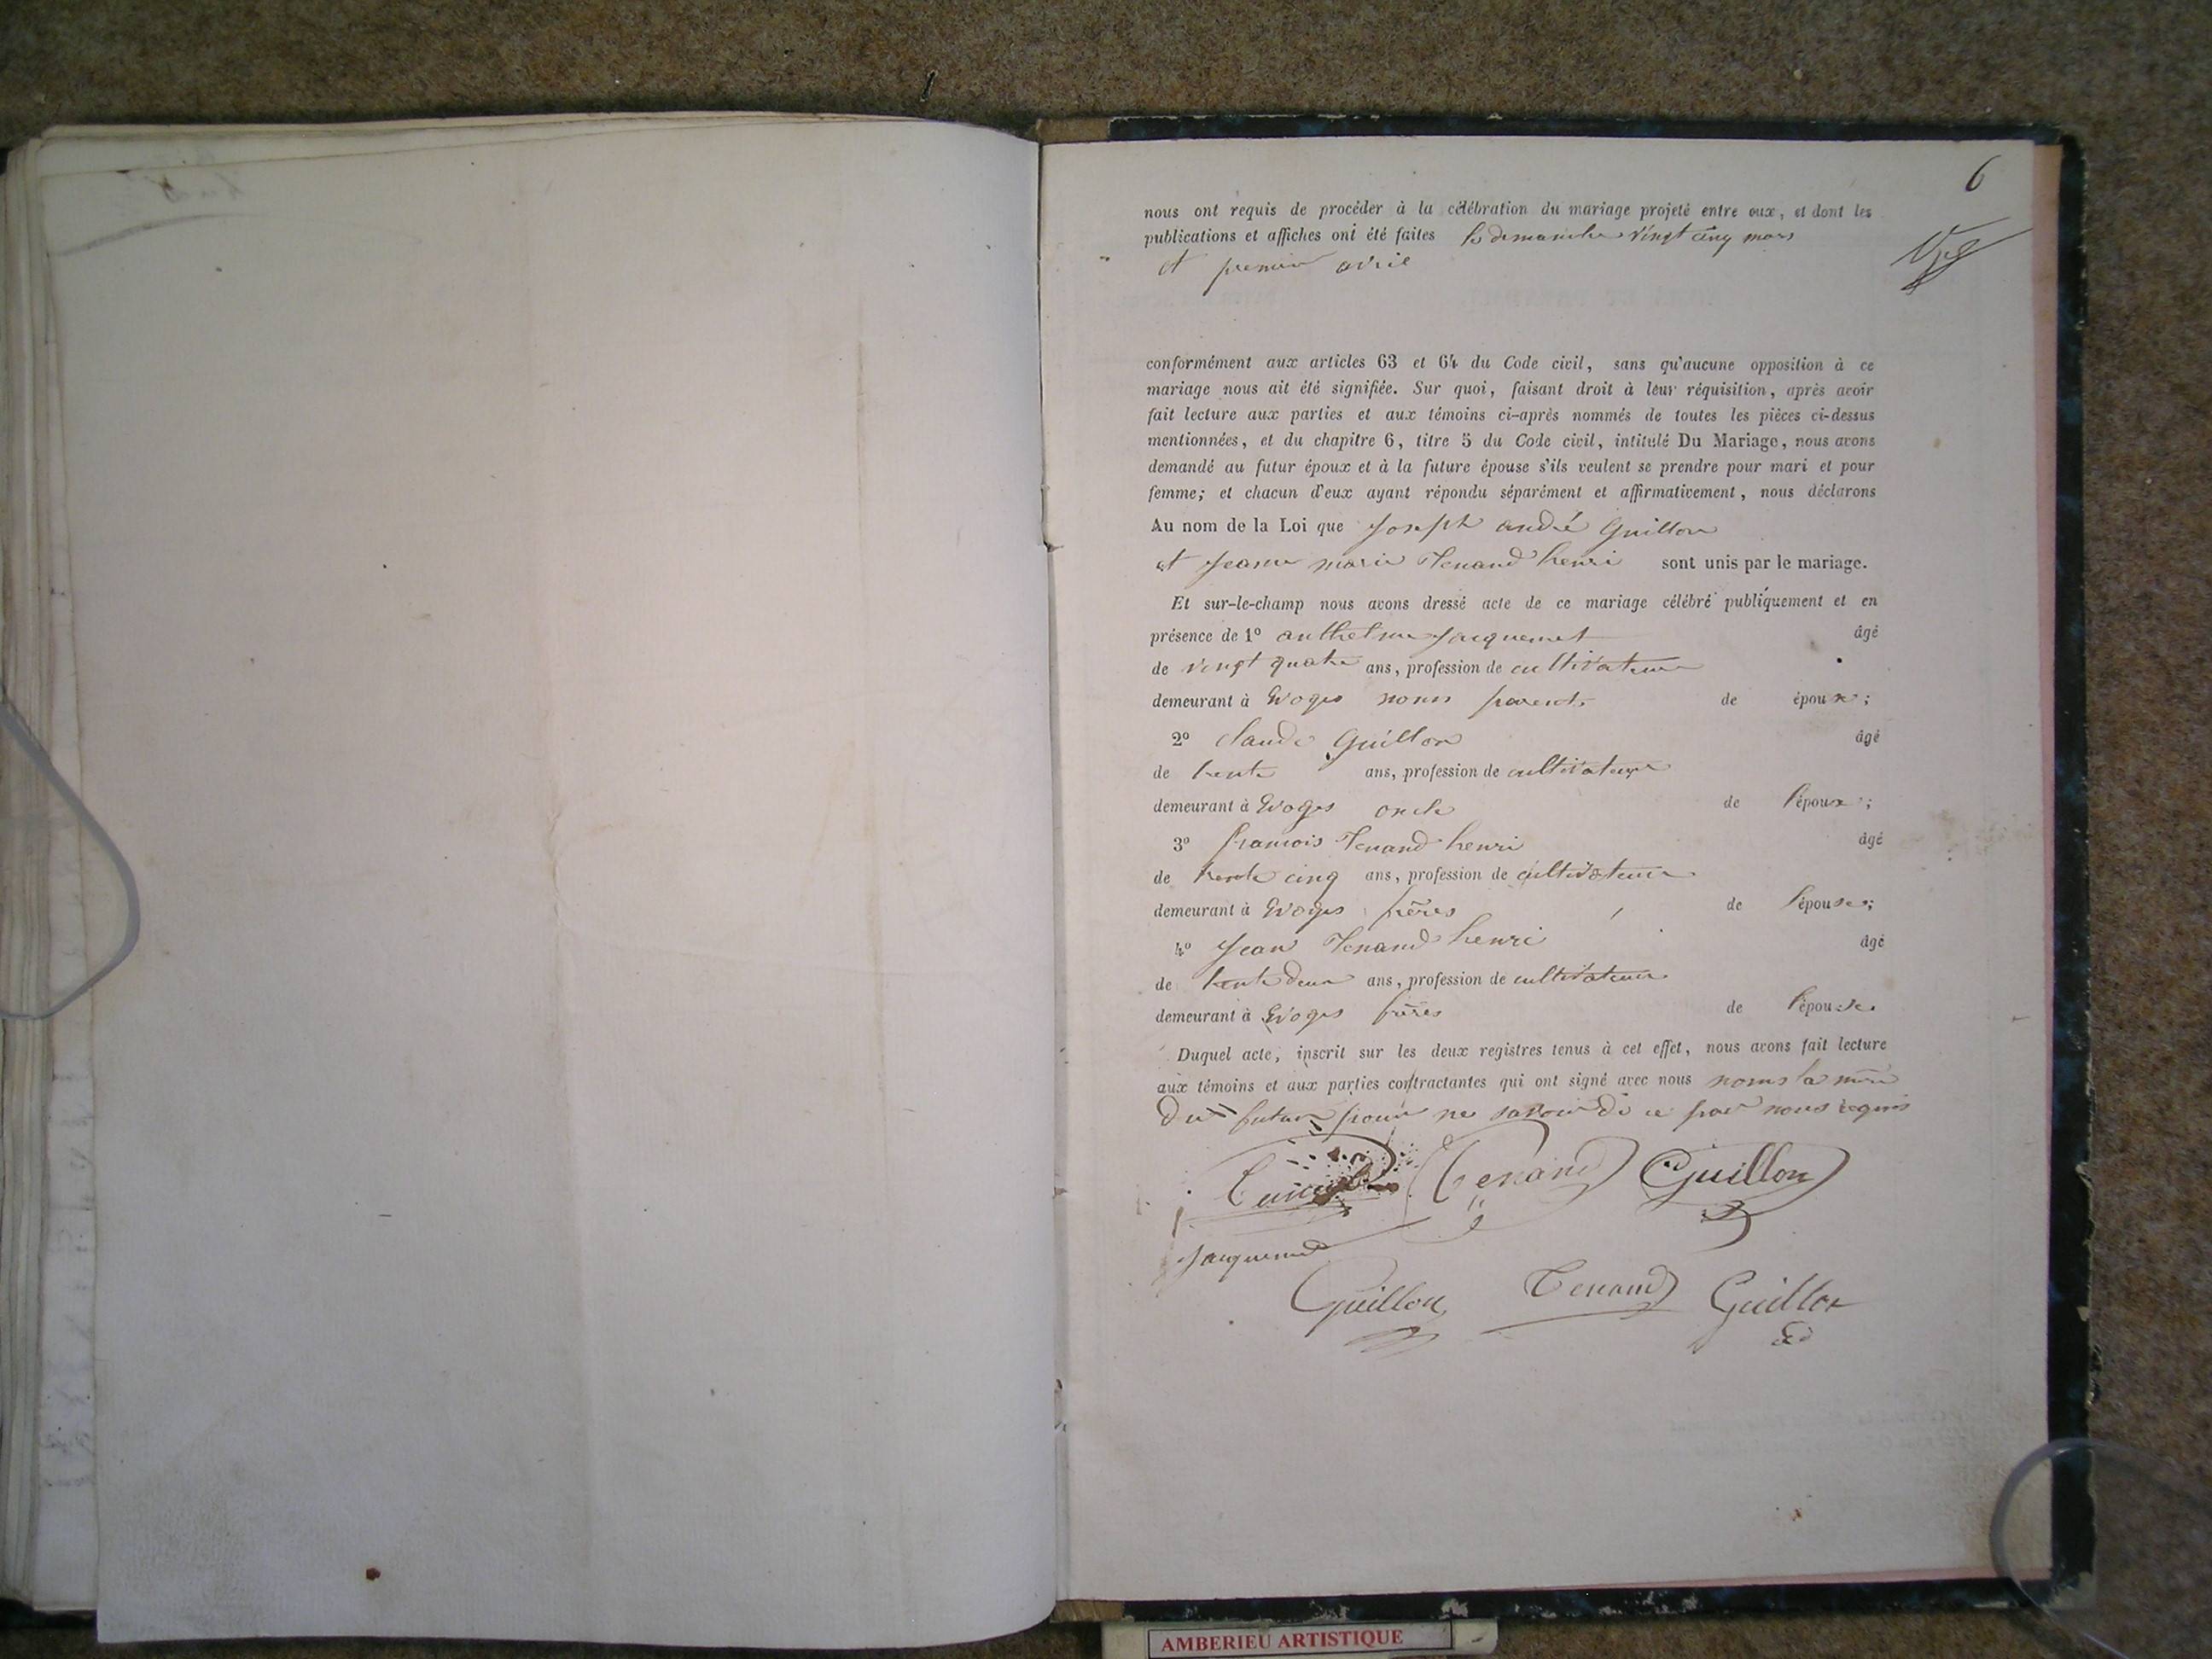 6
nous ont requis de procéder à la célébration du mariage projeté entre eux, et dont les
publications et affiches ont été faites le dimanche vingt cinq mars
et premier avril
conformément aux articles 63 et 64 du Code civil, sans qu'aucune opposition à ce
mariage nous ait été signifiée. Sur quoi, faisant droit à leur réquisition, après avoir
fait lecture aux parties et aux témoins ci-après nommés de toutes les pièces ci-dessus
mentionnées, et du chapitre 6, titre 5 du Code civil, intitulé Du Mariage, nous avons
demandé au futur époux et à la future épouse s'ils veulent se prendre pour mari et pour
femme; et chacun d'eux ayant répondu séparément et affirmativement, nous déclarons
Au nom de la Loi que Joseph andré Guillon
et Jeanne marie Tenand henri sont unis par le mariage.
Et sur-le-champ nous avons dressé acte de ce mariage célébré publiquement et en
présence de 1º anthelme Jacquemet âgé
de vingt quatre ans, profession de cultivateur
demeurant à Evoges nonn parents de époux;
2º claude Guillon âgé
de trente ans, profession de cultivateur
demeurant à Evoges oncle de l'époux;
3º francois Tenand henri âgé
de trente cinq ans, profession de cultivateur
demeurant à Evoges frères de l'épouse;
4º Jean Tenand henri âgé
de trente deux ans, profession de cultivateur
demeurant à Evoges frères de l'épouse
Duquel acte, inscrit sur les deux registres tenus à cet effet, nous avons fait lecture
aux témoins et aux parties contractantes qui ont signé avec nous nonns la mère
Du futur pour ne savoir de ce par nous requis
Tenand Guillon
Jacquemet
Guillon Tenand Guillon
AMBERIEU ARTISTIQUE